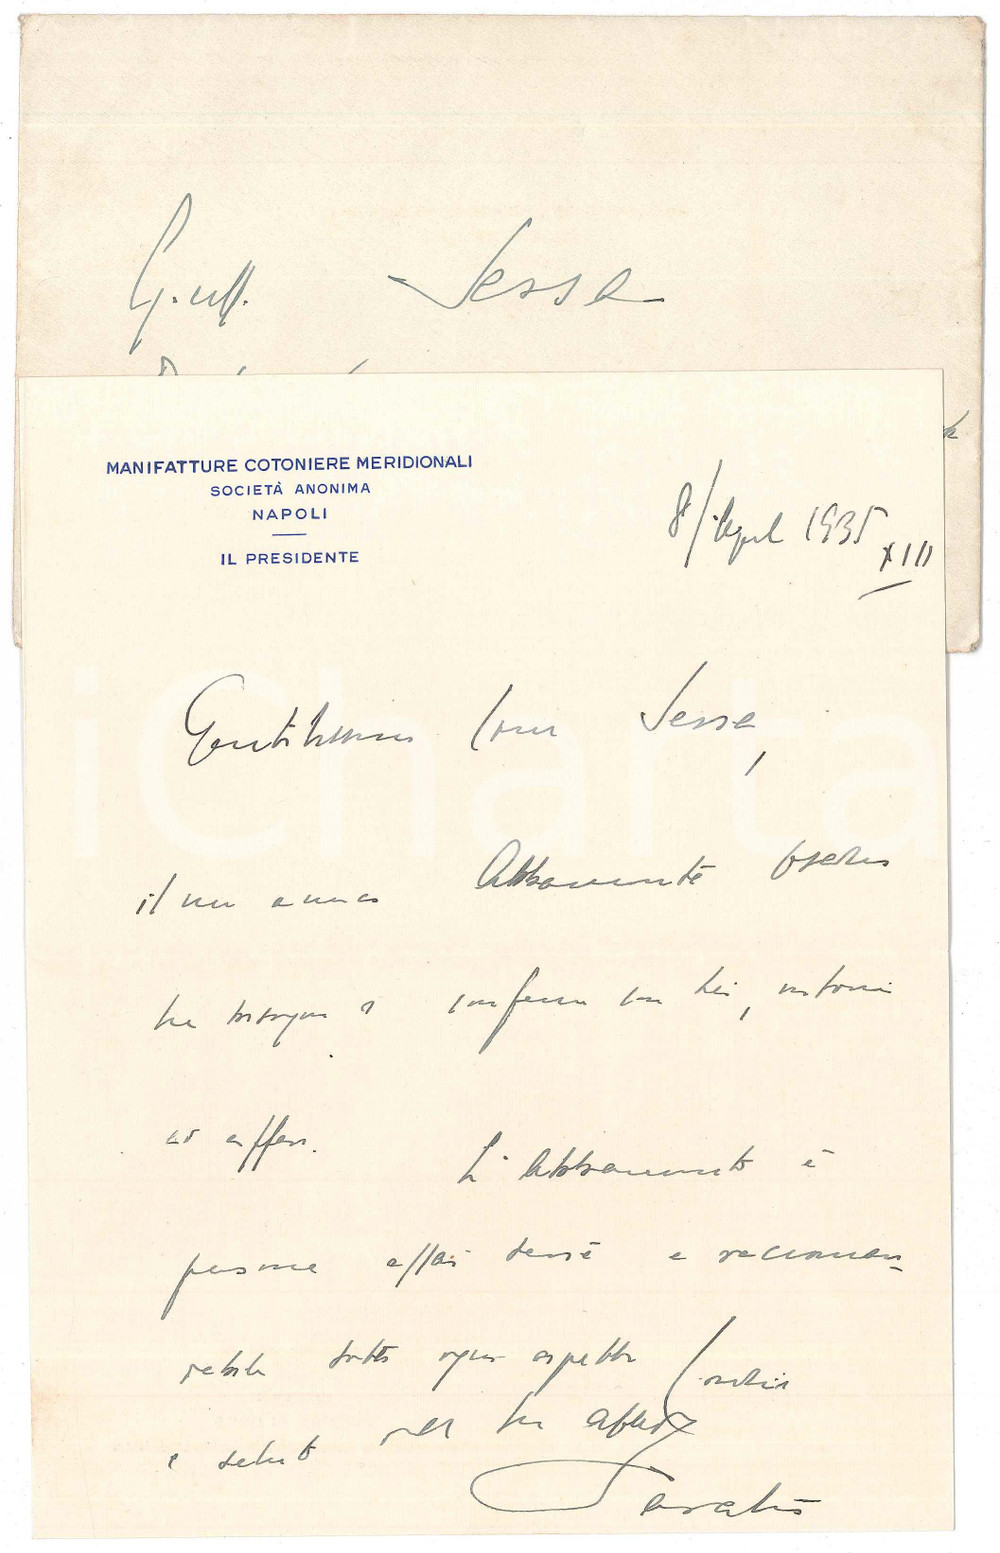 G. uff. Sessa
MANIFATTURE COTONIERE MERIDIONALI
SOCIETÀ ANONIMA
NAPOLI
IL PRESIDENTE
8/April 1935
XIII
iCharta
Gentilissimo Com Sessa,
il mio amico Abbamonte
ha bisogno di conferire con Lei, intorno
ad affari.
L'Abbamonte è
persona assai seria e raccoman-
dabile sotto ogni aspetto. Cordiali
saluti